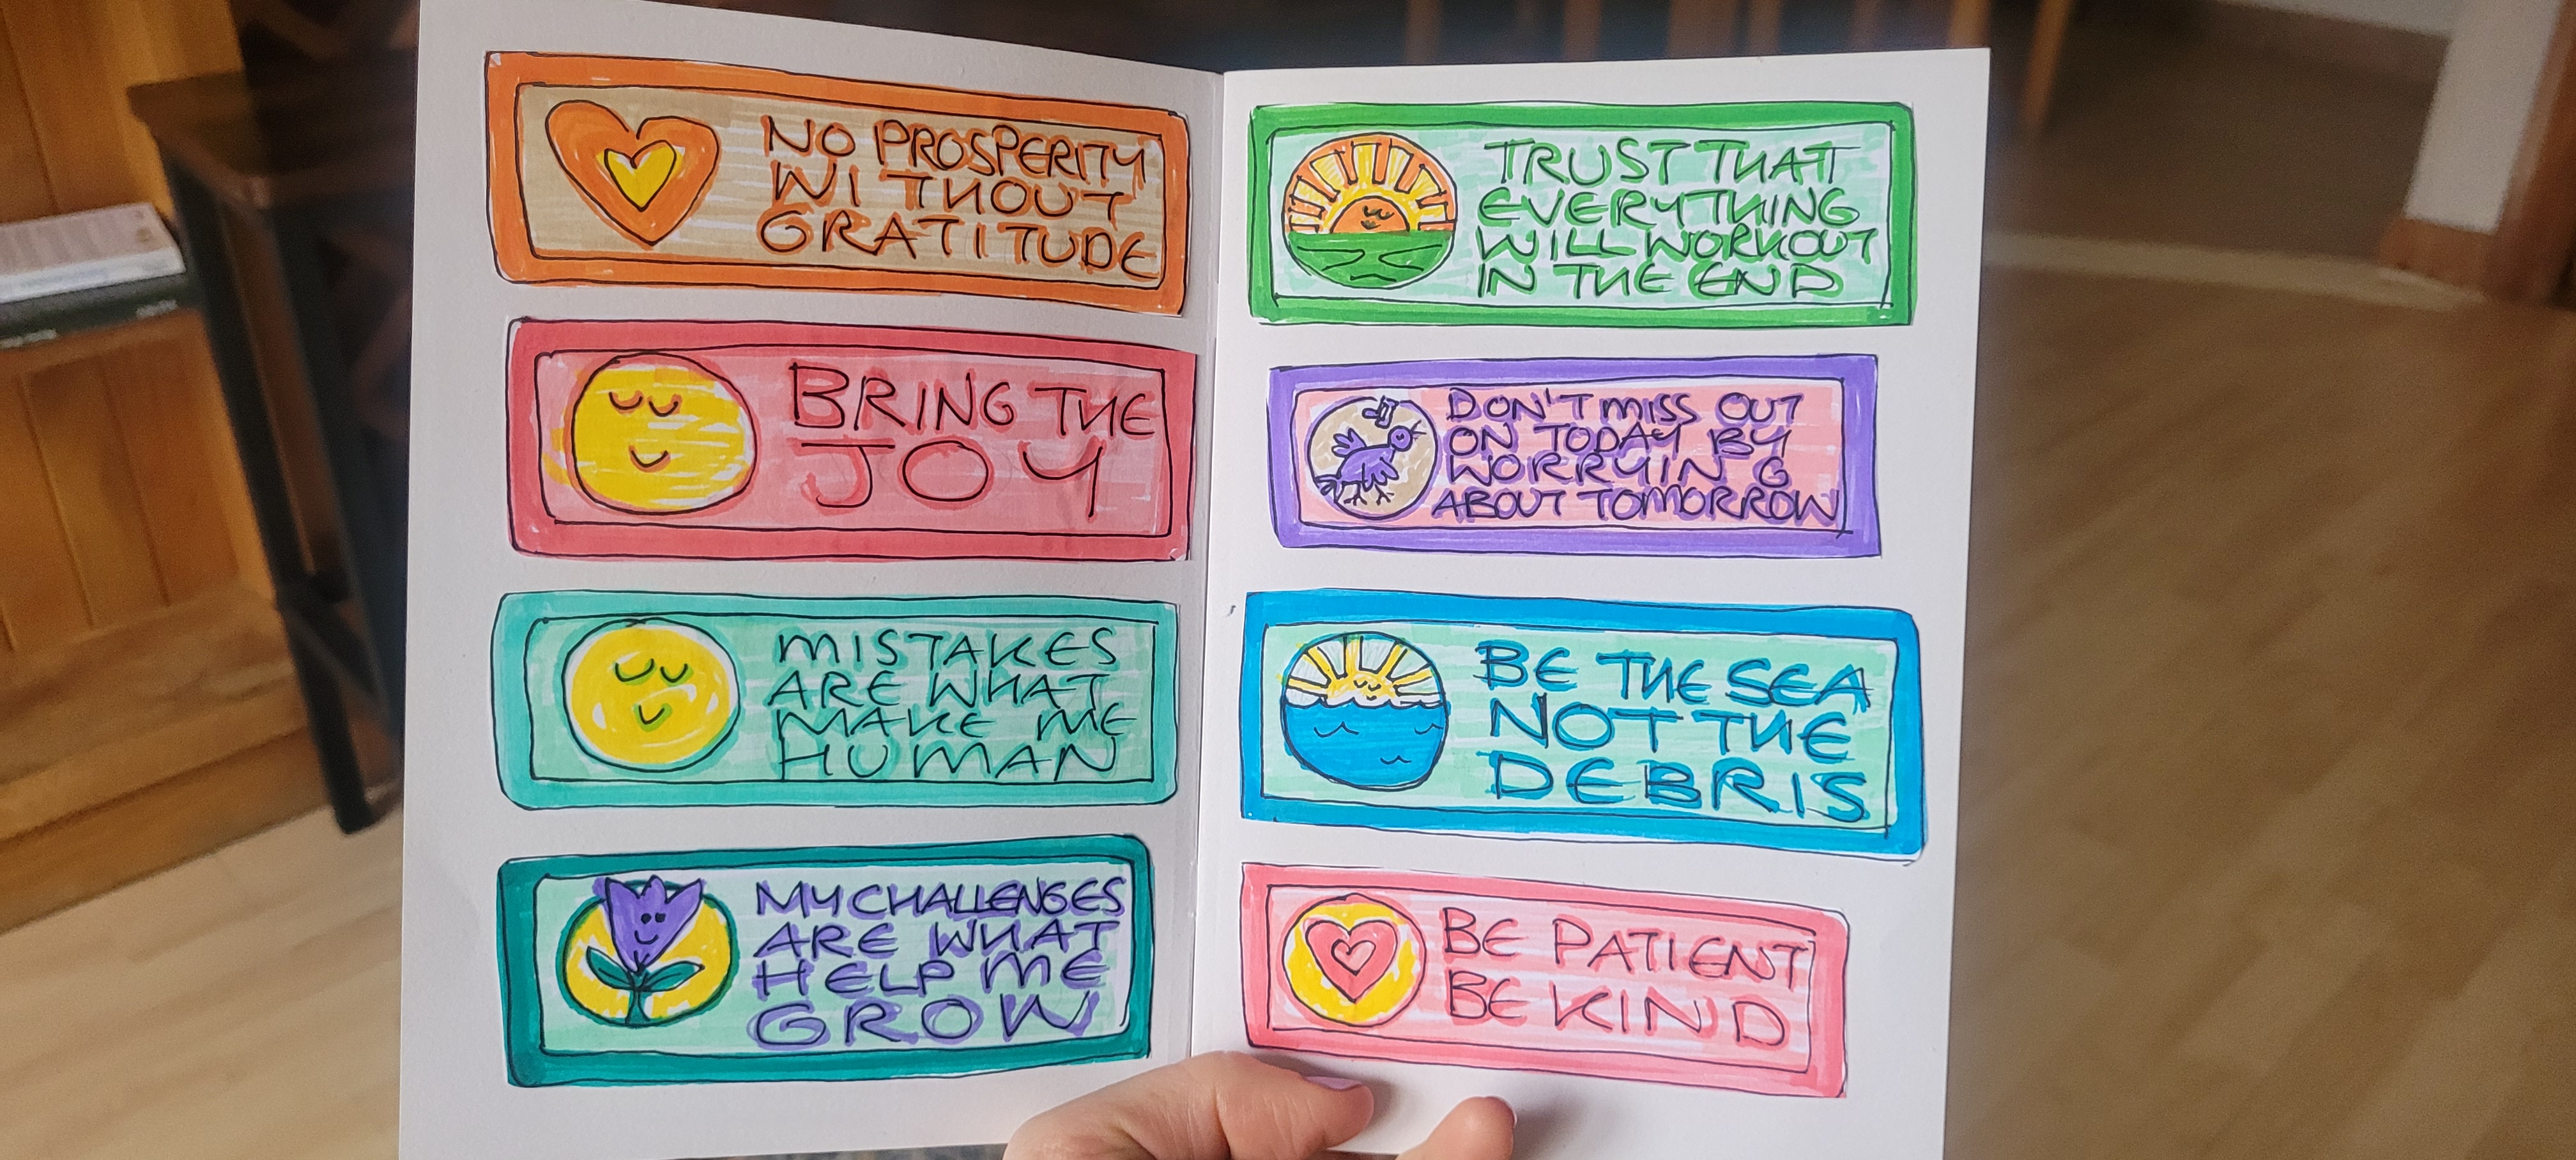 NO PROSPERITY
WITHOUT
GRATITUDE
BRING THE
JOY
MISTAKES
ARE WHAT
MAKE ME
HUMAN
MY CHALLENGES
ARE WHAT
HELP ME
GROW
TRUST THAT
EVERYTHING
WILL WORK OUT
IN THE END
DON'T MISS OUT
ON TODAY BY
WORRYING
ABOUT TOMORROW
BE THE SEA
NOT THE
DEBRIS
BE PATIENT
BE KIND